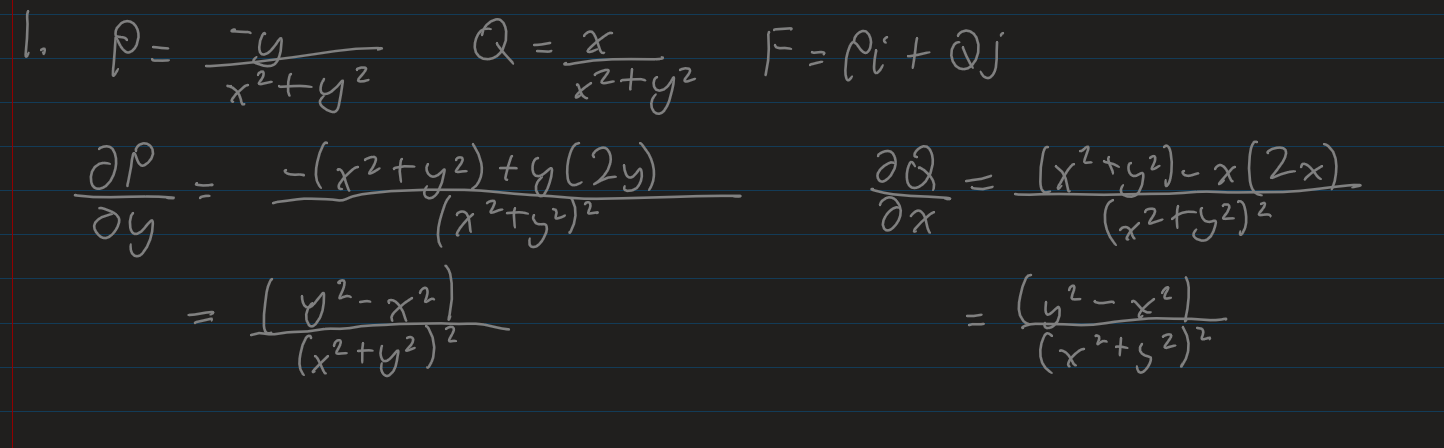 1. P = -y/(x²+y²) Q = x/(x²+y²) F = Pi + Qj
∂P/∂y = (-(x²+y²)+y(2y))/(x²+y²)² ∂Q/∂x = ((x²+y²)-x(2x))/(x²+y²)²
= (y²-x²)/(x²+y²)² = (y²-x²)/(x²+y²)²